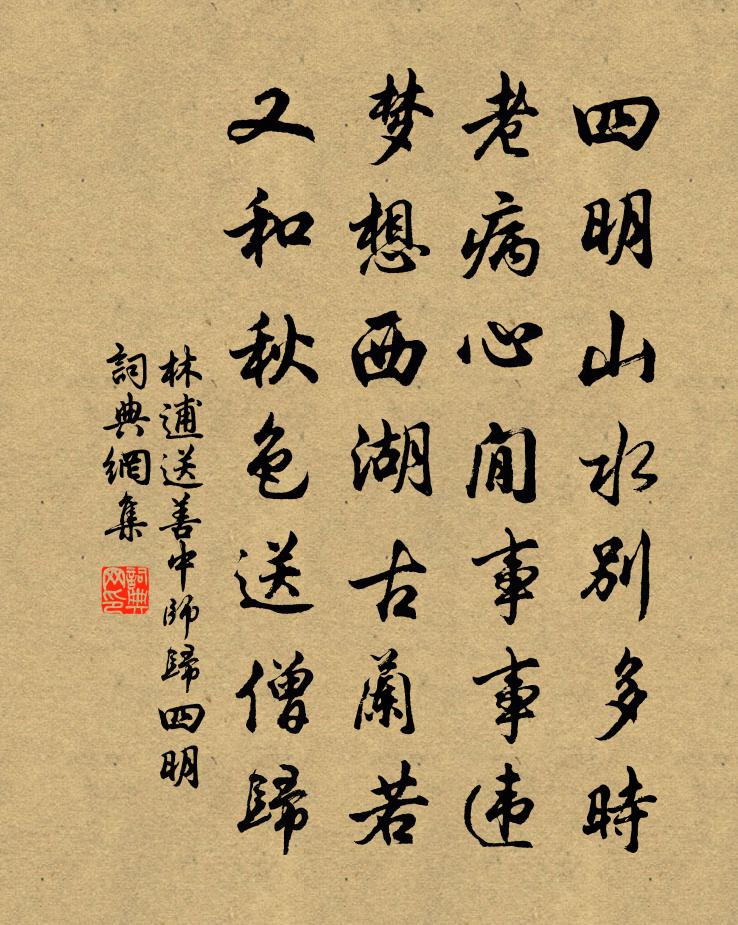 四明山水别多時
老病心閒事事违
梦想西湖古蘭若
又和秋色送僧歸
林逋送善中師歸四明
詞典網集
詞典网印